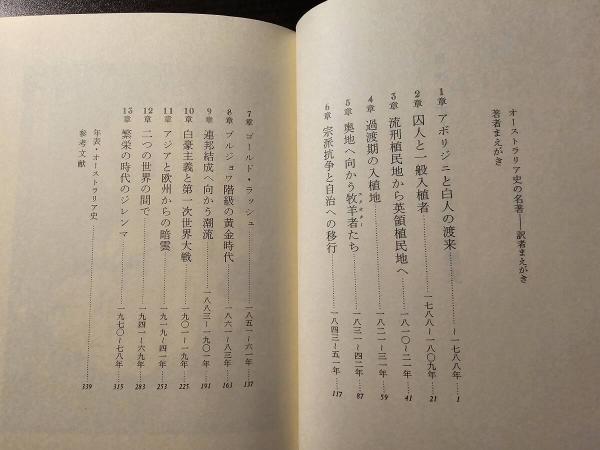 オーストラリア史の名著――訳者まえがき
著者まえがき
1章 アボリジニと白人の渡来……～一七八八年……1
2章 囚人と一般入植者……一七八八～一八〇九年……21
3章 流刑植民地から英領植民地へ……一八一〇～二一年……41
4章 過渡期の入植地……一八二一～三一年……59
5章 奥地へ向かう牧羊者たち……一八三一～四二年……87
6章 宗派抗争と自治への移行……一八四三～五一年……117
7章 ゴールド・ラッシュ……一八五一～六一年……137
8章 ブルジョワ階級の黄金時代……一八六一～八三年……163
9章 連邦結成へ向かう潮流……一八八三～一九〇一年……191
10章 白豪主義と第一次世界大戦……一九〇一～一九年……225
11章 アジアと欧州からの暗雲……一九一九～四一年……253
12章 二つの世界の間で……一九四一～六九年……283
13章 繁栄の時代のジレンマ……一九七〇～七八年……315
年表・オーストラリア史
参考文献……339